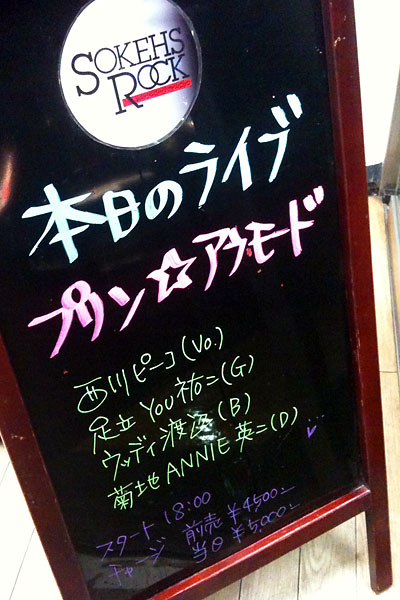 SOKEHS
ROCK
本日のライブ
プリン☆アラモード
西川ピーコ(Vo.)
足立YOU祐二(G)
ウッディ渡邉(B)
菊地ANNIE英二(D)...
スタート 18:00
チャージ 前売 ¥4500-
当日 ¥5,000-